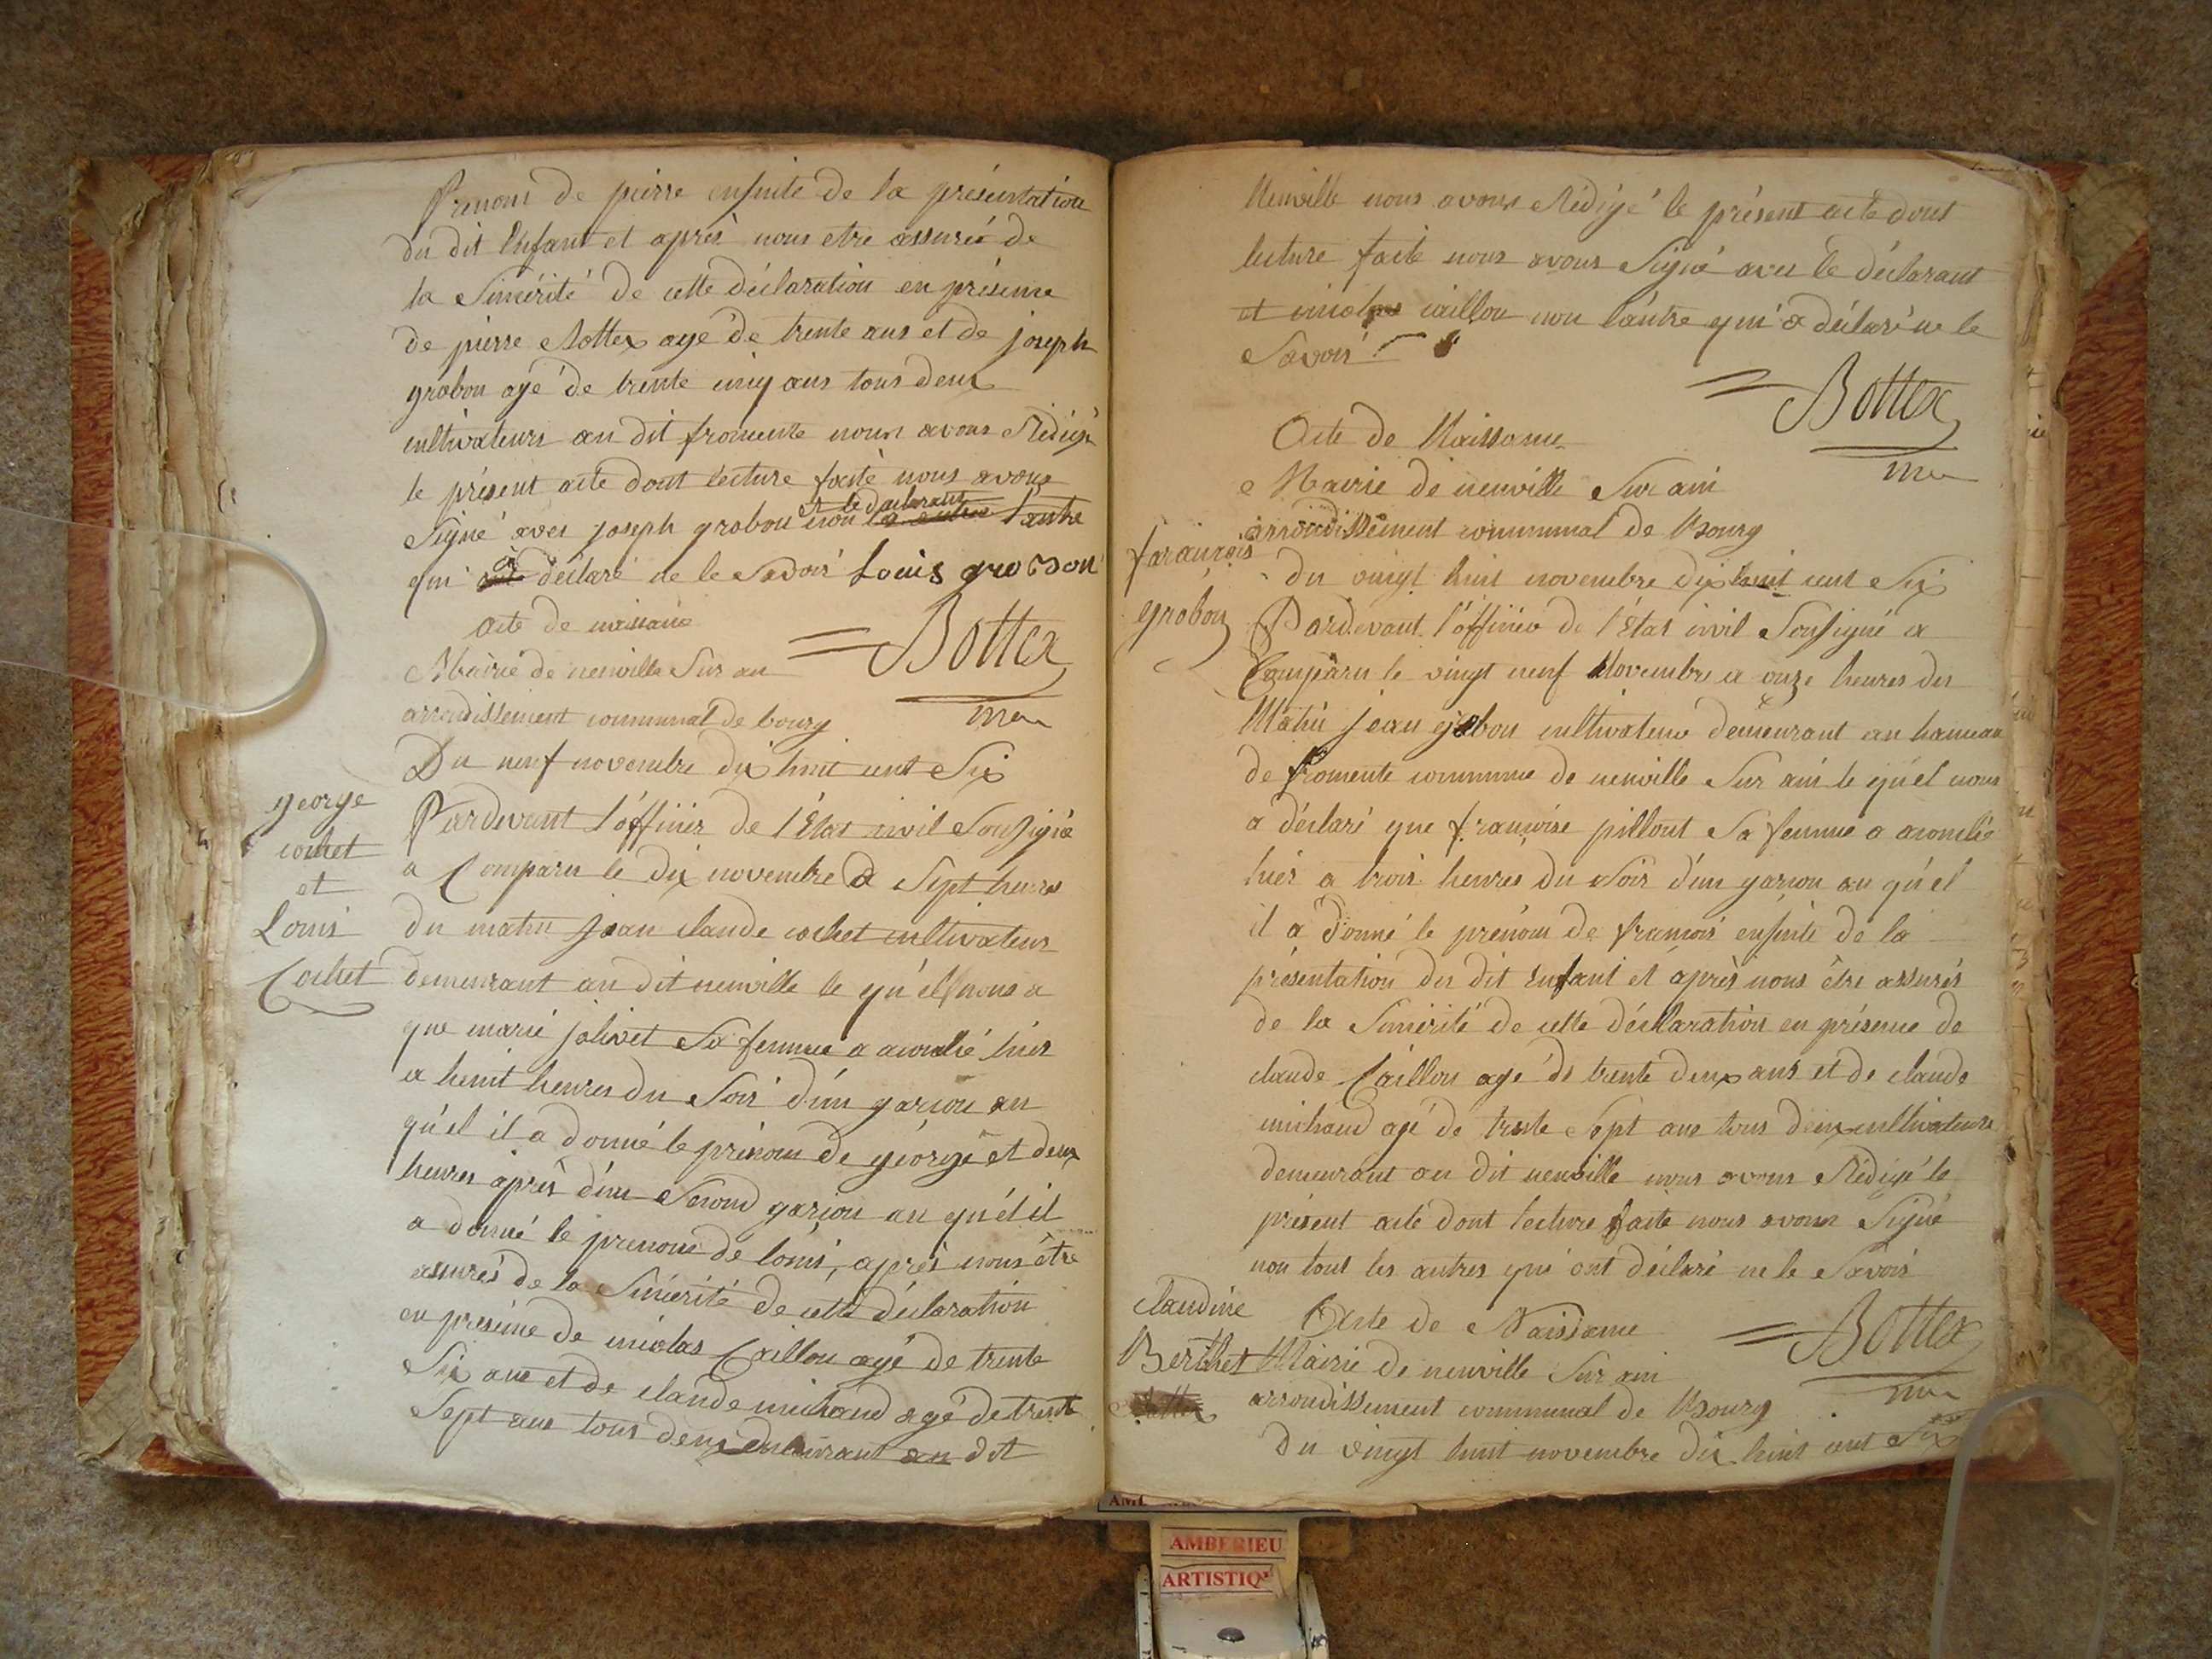 Prenom de pierre ensuite de la présentation
du dit Enfant et après nous etre assuré de
la Sincérité de cette déclaration en présence
de pierre Bottex agé de trente ans et de joseph
grobon agé de trente cinq ans tous deux
cultivateurs au dit fromente nous avons Rédigé
le présent acte dont lecture faite nous avons
et le déclarant
Signé avec joseph grobon non l'autre
qui a déclaré ne le Savoir Louis grobon
acte de naissance
Bottex
Mairie de neuville Sur ain
arrondissement communal de bourg
Du neuf novembre dix huit cent Six
george
cochet
et
Louis
Cochet
Pardevant l'officier de l'État civil Soussigné
a Comparu le dix novembre a Sept heures
du matin jean claude cochet cultivateur
demeurant au dit neuville le qu'el nous a
que marie jolivet Sa femme a acouché hier
a heuit heures du Soir d'un garçon au
qu'el il a donné le prénom de géorge et deux
heures après d'un Second garçon au qu'el il
a donné le prenom de louis, après nous être
assurés de la Sincérité de cette déclaration
en présence de nicolas Caillou agé de trente
Six ans et de claude michaud agé de trente
Sept ans tous deux demeurant au dit
Neuville nous avons Rédigé le présent acte dont
lecture faite nous avons Signé avec le déclarant
et nicolas caillou non l'autre qui a déclaré ne le
Savoir
Bottex
Acte de Naissance
Mairie de neuville Sur ain
arrondissement communal de Bourg
farançois
grobon
du vingt huit novembre dix huit cent Six
Pardevant l'officier de l'État civil Soussigné a
Comparu le vingt neuf Novembre a onze heures du
Matin jean grobon cultivateur demeurant au hameau
de fromente commune de neuville Sur ain le qu'el nous
a déclaré que françoise pillout Sa femme a acouché
hier a trois heures du Soir d'un garcon au qu'el
il a donné le prénom de francois ensuite de la
présentation du dit Enfant et après nous être assurés
de la Sincérité de cette déclaration en présence de
claude Caillou agé de trente deux ans et de claude
michaud agé de trente Sept ans tous deux cultivateurs
demeurant au dit neuville nous avons Rédigé le
présent acte dont lecture faite nous avons Signé
non tout les autres qui ont déclaré ne le Savoir
Bottex
claudine
Berthet
Acte de Naissance
Mairie de neuville Sur ain
arrondissement communal de Bourg
du vingt huit novembre dix huit cent Six
AMBERIEU
ARTISTIQ